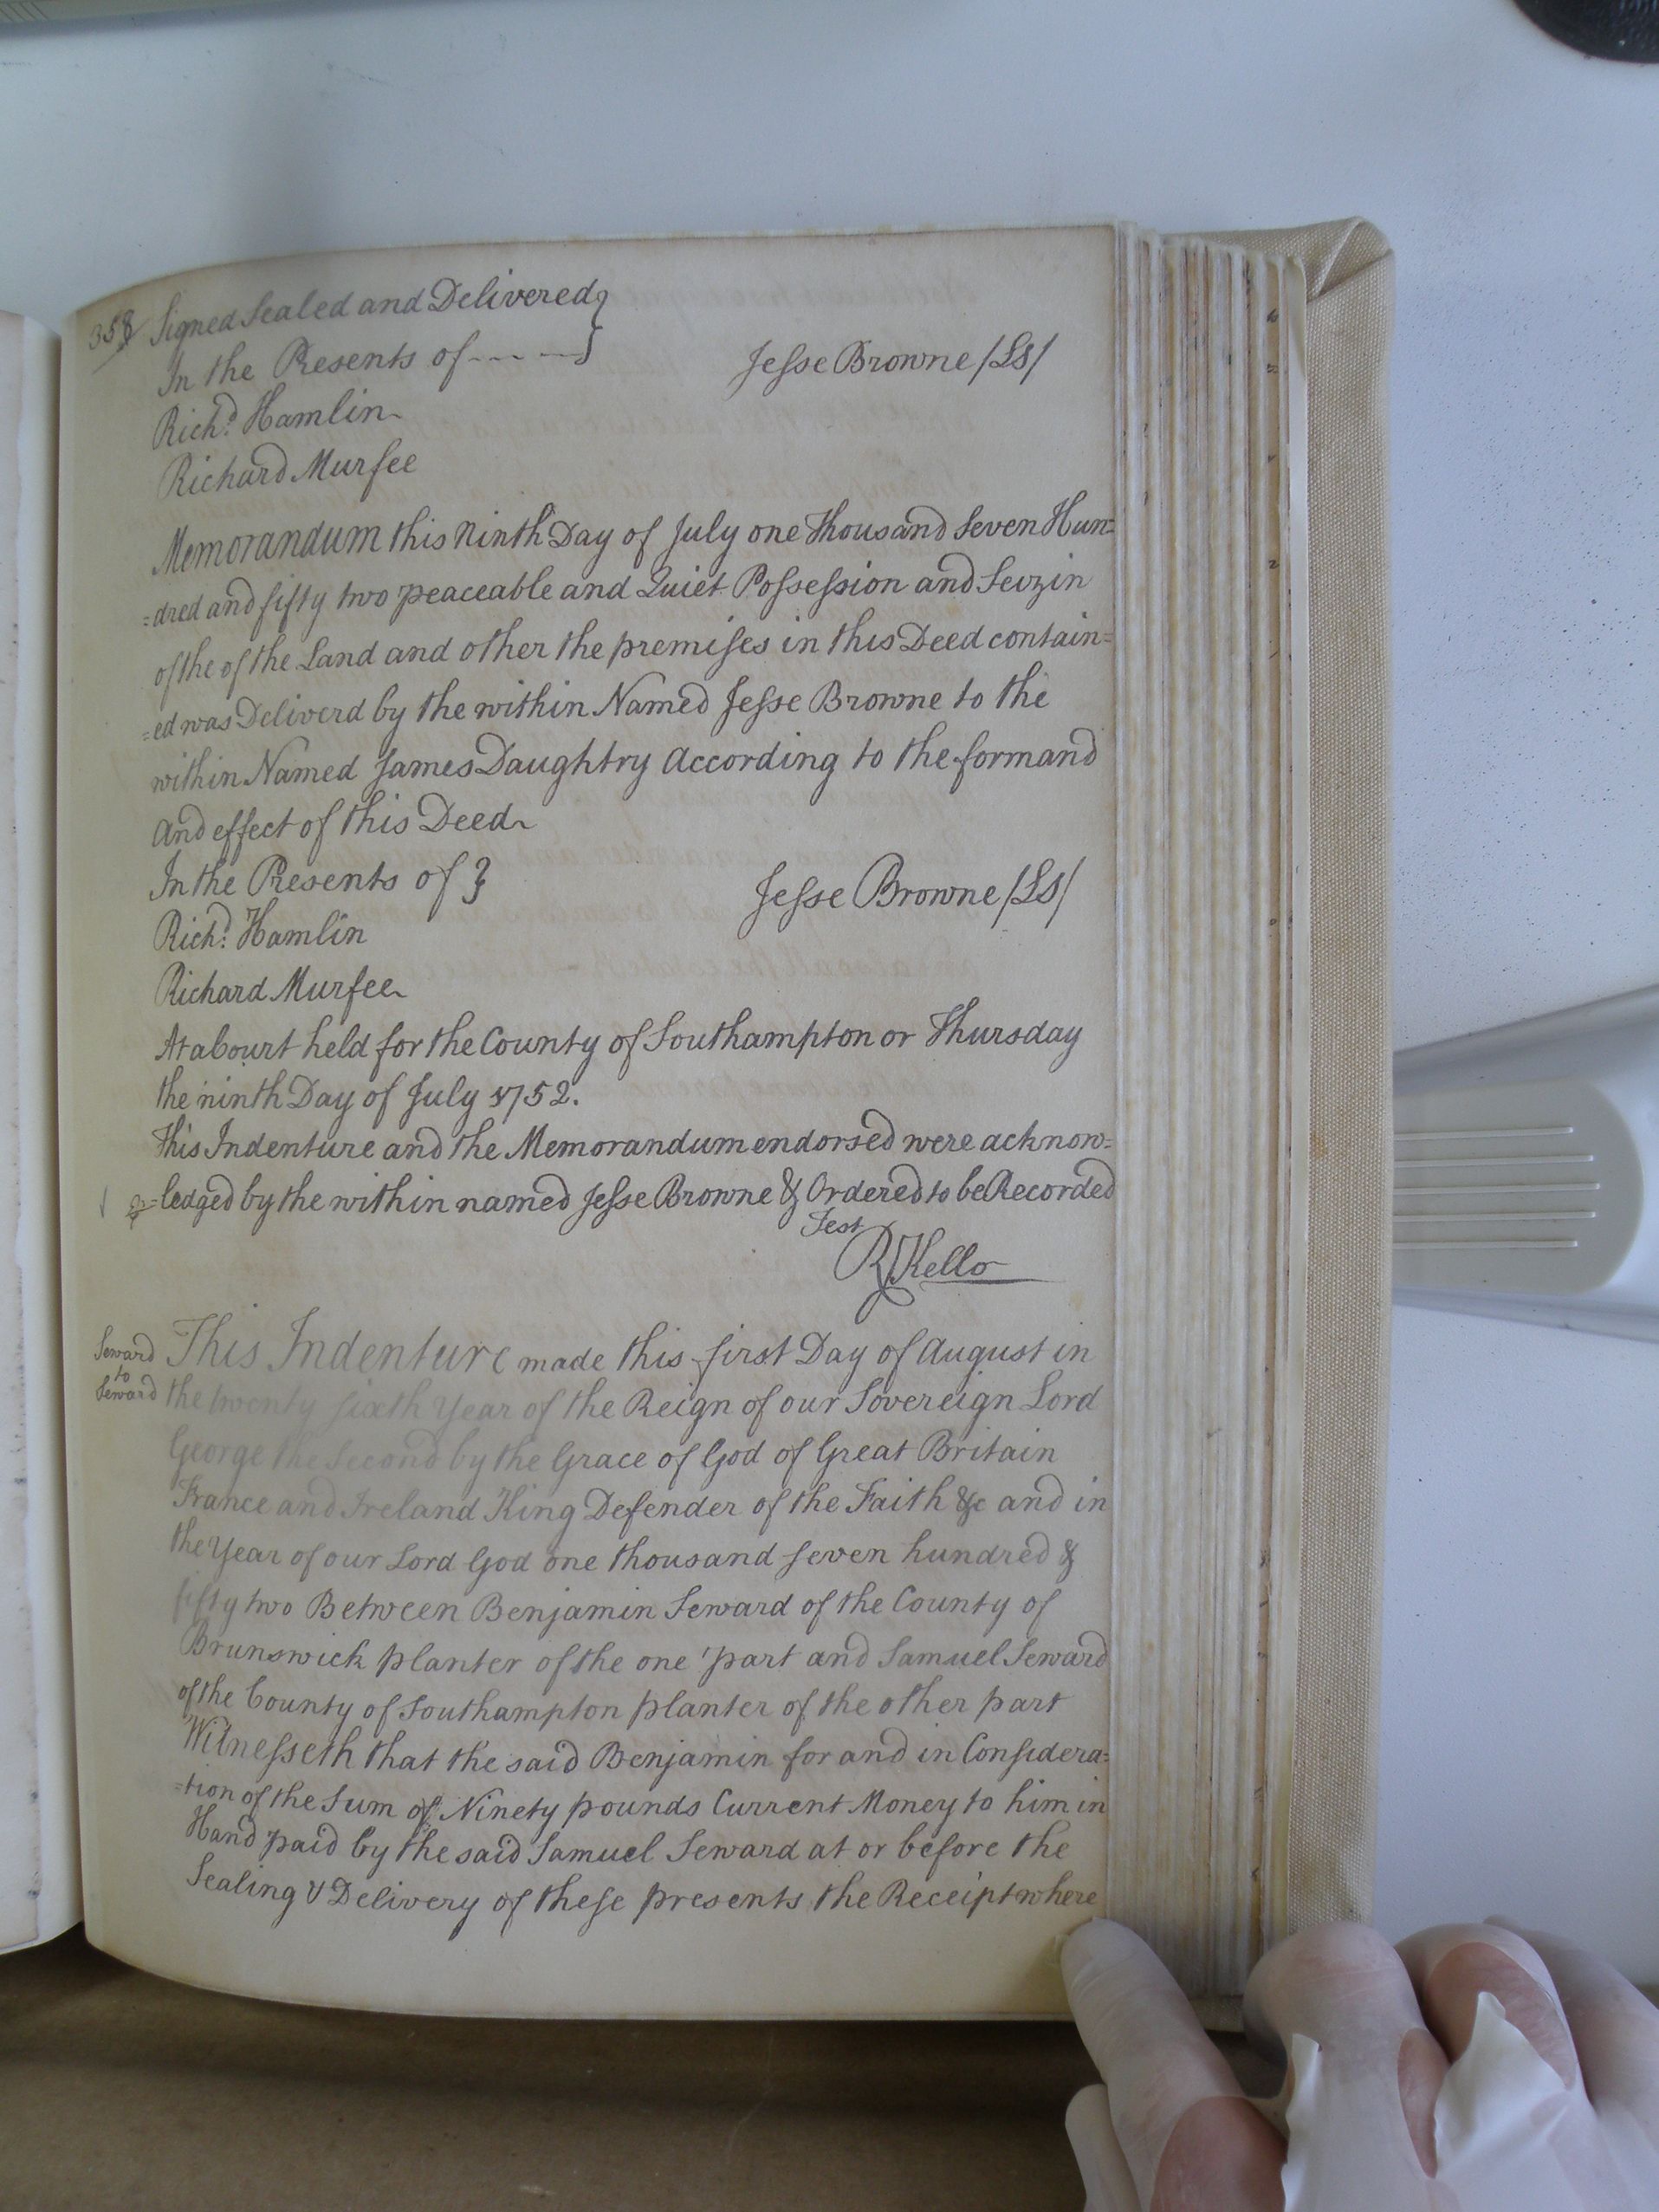 358 Signed Sealed and Delivered }
In the Presents of - - - - }
Jesse Browne /LS/
Richd. Hamlin
Richard Murfee
Memorandum this Ninth Day of July one Thousand Seven Hun=
=dred and fifty two peaceable and Quiet Possession and Seizin
of the of the Land and other the premises in this Deed contain=
=ed was Deliverd by the within Named Jesse Browne to the
within Named James Daughtry According to the form and
And effect of this Deed
In the Presents of }
Jesse Browne /LS/
Richd. Hamlin
Richard Murfee
At a Court held for the County of Southampton on Thursday
the ninth Day of July 1752.
This Indenture and the Memorandum endorsed were acknow=
=ledged by the within named Jesse Browne & Ordered to be Recorded
Test
R Kello
Seward
to
Seward
This Indenture made this first Day of August in
the twenty sixth Year of the Reign of our Sovereign Lord
George the Second by the Grace of God of Great Britain
France and Ireland King Defender of the Faith &c and in
the Year of our Lord God one thousand seven hundred &
fifty two Between Benjamin Seward of the County of
Brunswick planter of the one part and Samuel Seward
of the County of Southampton planter of the other part
Witnesseth that the said Benjamin for and in Considera=
=tion of the Sum of Ninety pounds Current Money to him in
Hand paid by the said Samuel Seward at or before the
Sealing & Delivery of these presents the Receipt where